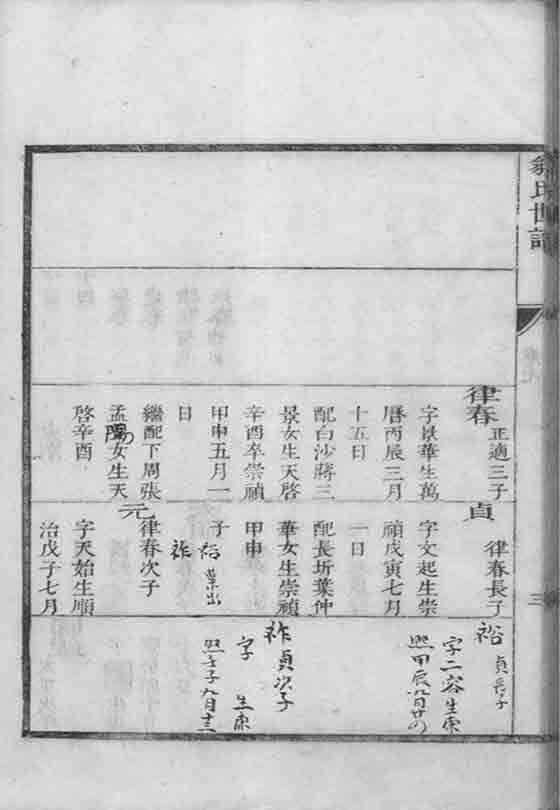 氏世
三
律春 正適三子
字景華生萬
曆丙辰三月
十五日
配白沙蔣三
景女生天啓
辛酉卒崇禎
甲申五月一
日
繼配下周張
孟陽女生天
啓辛酉
貞 律春長子
字文起生崇
禎戊寅七月
一日
配長圻葉仲
華女生崇禎
甲申
子 裕 葉出
祚
元
律春次子
字天始生順
治戊子七月
裕 貞長子
字二容生康
熙甲辰八月廿
祚 貞次子
字 生康
熙壬子九月十三